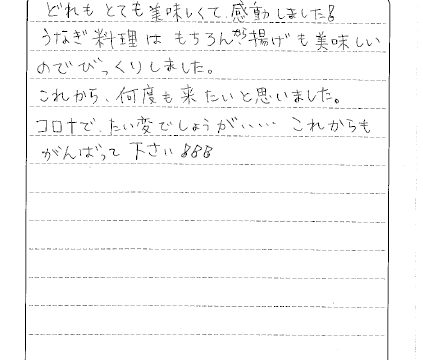 どれも とても美味しくて、感動しました!
うなぎ料理は もちろん、から揚げも美味しい
のでびっくりしました。
これから、何度も来たいと思いました。
コロナで、たい変でしょうが…… これからも
がんばって下さい!!!